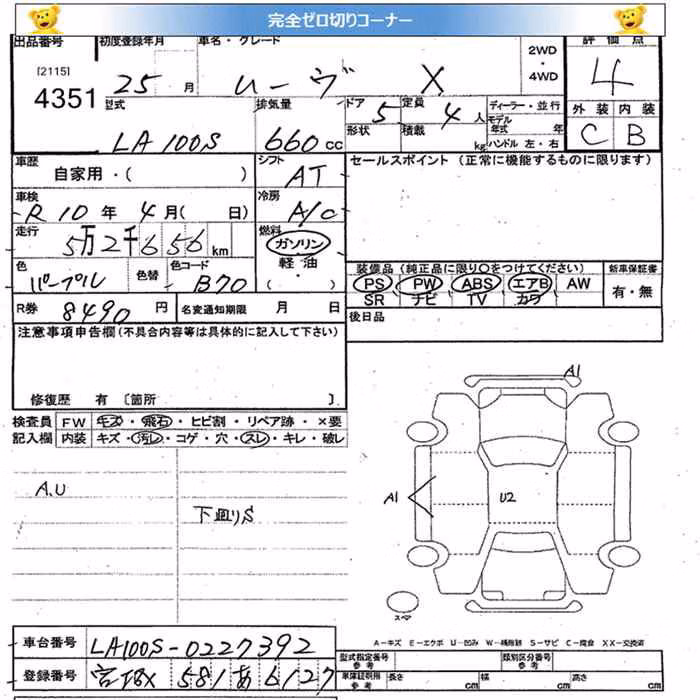 完全ゼロ切りコーナー
出品番号 初度登録年月 車名・グレード 2WD・4WD 評価点
[2115]
4351 25 月 ムーヴ X 4
型式 排気量 ドア 5 定員 4人 ディーラー・並行 外装 内装
LA100S 660cc 形状 積載 kg モデル年式 年 C B
ハンドル 左・右
車歴 シフト セールスポイント（正常に機能するものに限ります）
自家用・（ ） AT
車検 冷房
R10年4月（ 日） A/C
走行 燃料
5万2千656km ガソリン
軽油
・（ ）
色 色替 色コード 装備品（純品に限り○をつけてください） 新車保証書
パープル B70 PS PW ABS エアB AW 有・無
SR ナビ TV カワ
R券 8490円 名変通知期限 月 日 後日品
注意事項申告欄（不具合内容等は具体的に記入して下さい）
修復歴 有 〔箇所 〕
検査員 FW キズ・飛石・ヒビ割・リペア跡・×要
記入欄 内装 キズ・汚レ・コゲ・穴・スレ・キレ・破レ
A1
A.U
A1 U2
下廻りS
スペア
A－キズ E－エクボ U－凹ミ W－補修跡 S－サビ C－腐食 XX－交換済
車台番号 LA100S-0227392 型式指定番号 参考 類別区分番号 参考
登録番号 581あ6127 車庫証明用 参考 長さ cm 幅 cm 高さ cm